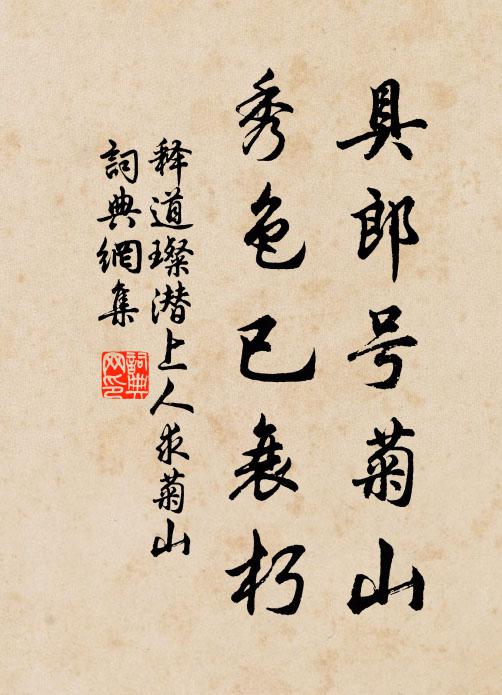 具郎号菊山
秀色已衰朽
释道璨潜上人求菊山
詞典網集
詞典網印